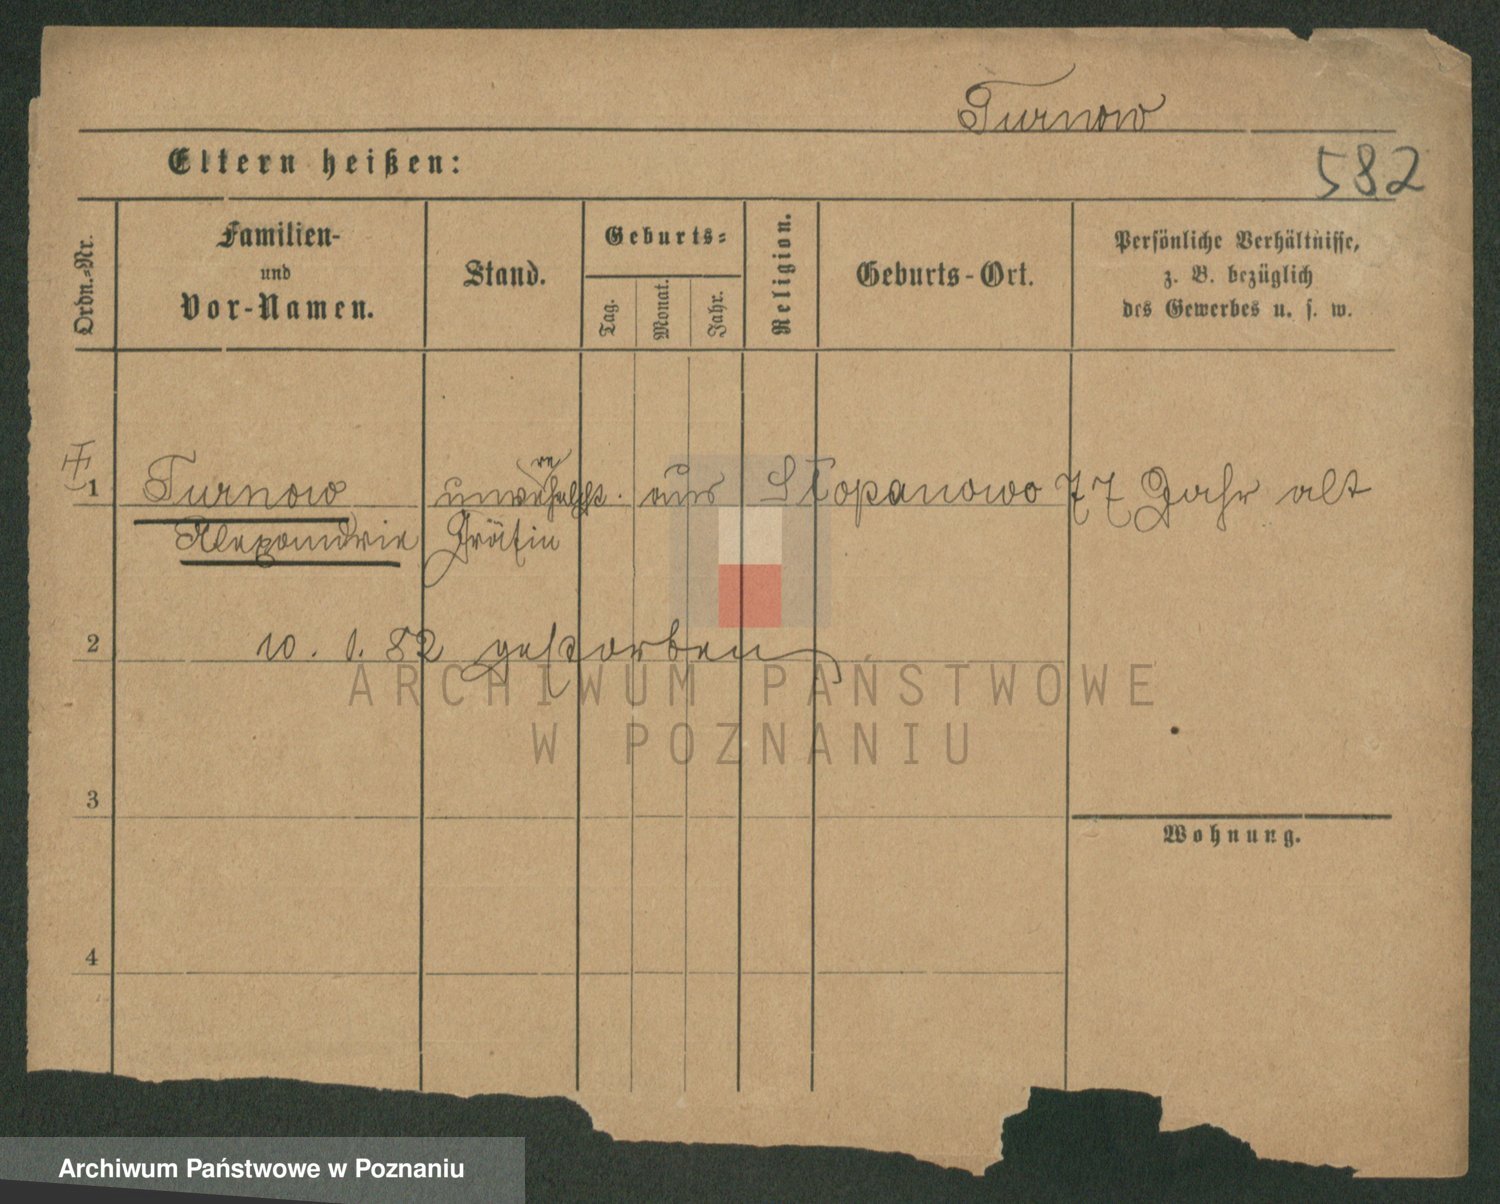 Turnow
Eltern heißen:
582
Ordn.-Nr.
Familien-
und
Vor-Namen.
Stand.
Geburts-
Tag.
Monat.
Jahr.
Religion.
Geburts-Ort.
Persönliche Verhältnisse,
z. B. bezüglich
des Gewerbes u. s. w.
1 Turnow aus Słopanowo 77 Jahr alt
Alexandrie Gräfin
2
10. 1. 82 gestorben
ARCHIWUM PAŃSTWOWE
W POZNANIU
3
Wohnung.
4
Archiwum Państwowe w Poznaniu